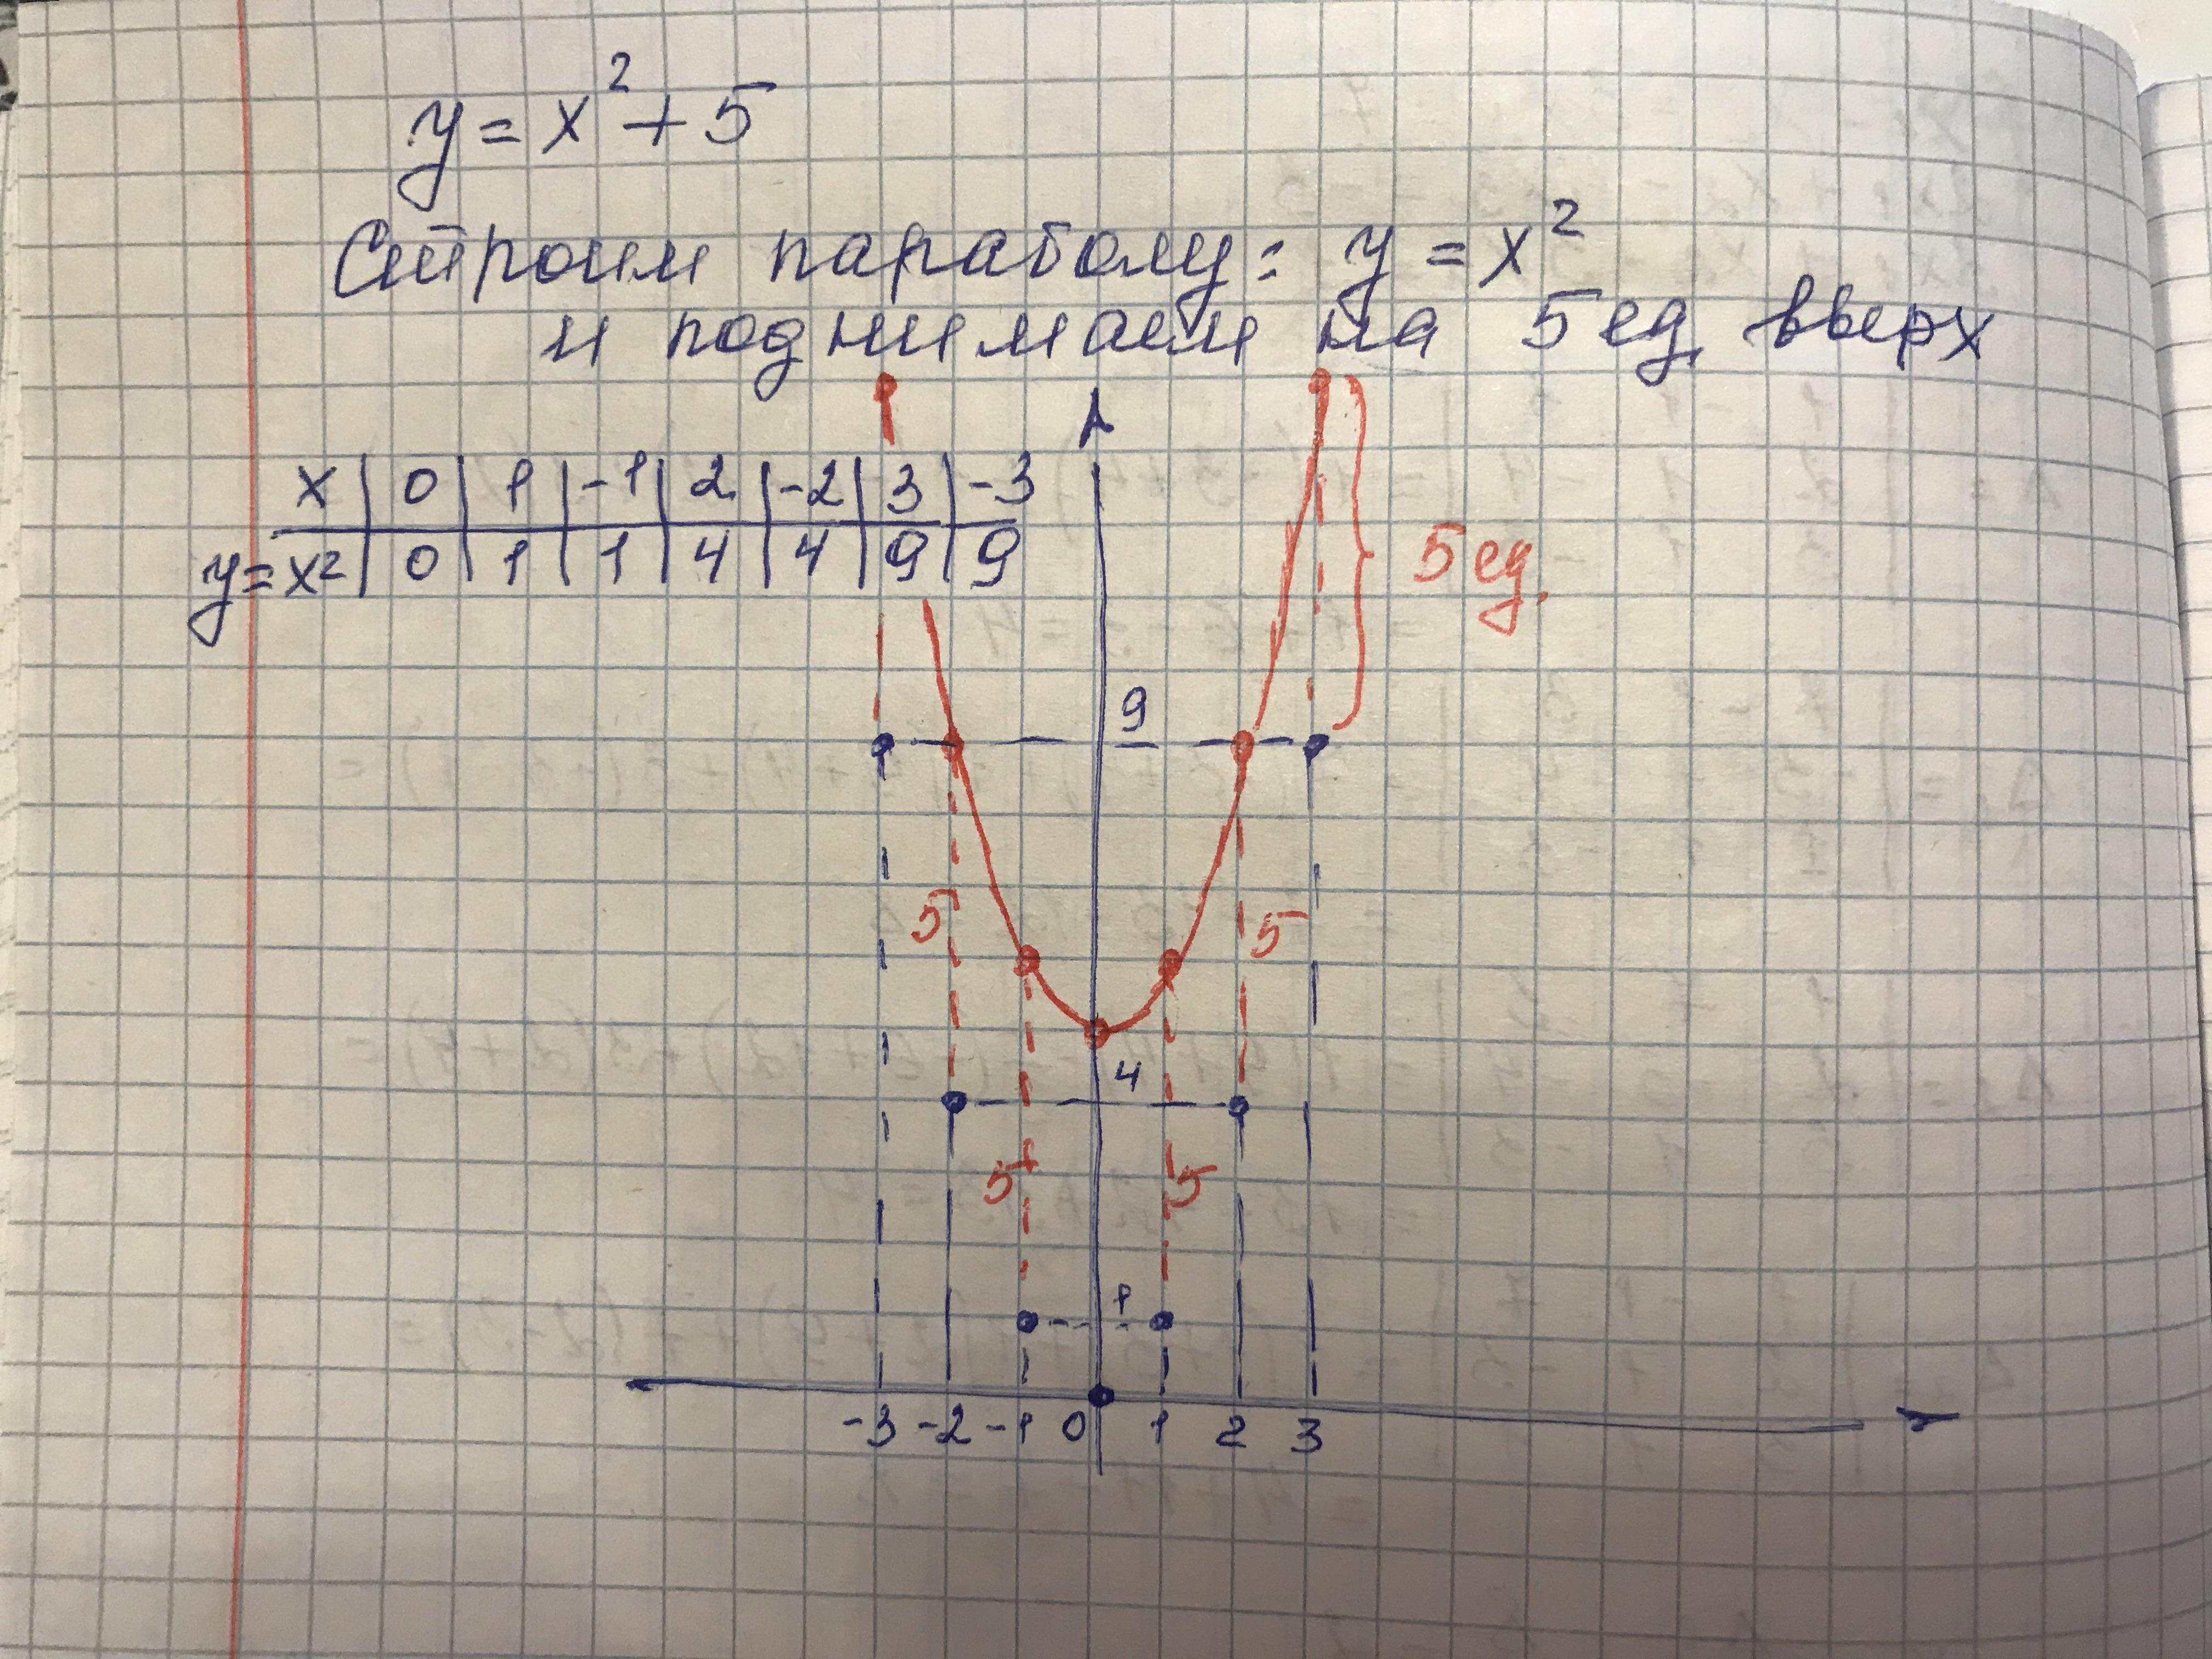 y = x² + 5
Строим параболу: y = x²
и поднимаем на 5 ед. вверх
x | 0 | 1 | -1 | 2 | -2 | 3 | -3
y = x² | 0 | 1 | 1 | 4 | 4 | 9 | 9
5 ед.
9
5 5
4
5 5
1
-3 -2 -1 0 1 2 3